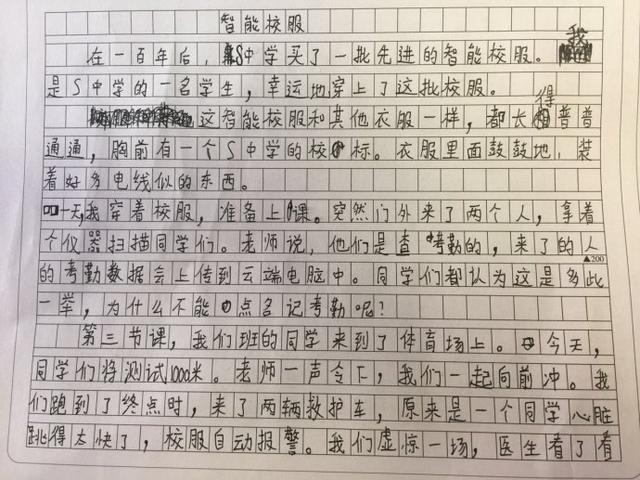 智能校服
在一百年后，S中学买了一批先进的智能校服。我
是S中学的一名学生，幸运地穿上了这批校服。
这智能校服和其他衣服一样，都长得普普
通通，胸前有一个S中学的校标。衣服里面鼓鼓地，装
着好多电线似的东西。
一天，我穿着校服，准备上课。突然门外来了两个人，拿着
个仪器扫描同学们。老师说，他们是查考勤的，来了的人
▲200
的考勤数据会上传到云端电脑中。同学们都认为这是多此
一举，为什么不能点名记考勤呢？
第三节课，我们班的同学来到了体育场上。今天，
同学们将测试1000米。老师一声令下，我们一起向前冲。我
们跑到了终点时，来了两辆救护车，原来是一个同学心脏
跳得太快了，校服自动报警。我们虚惊一场，医生看了看